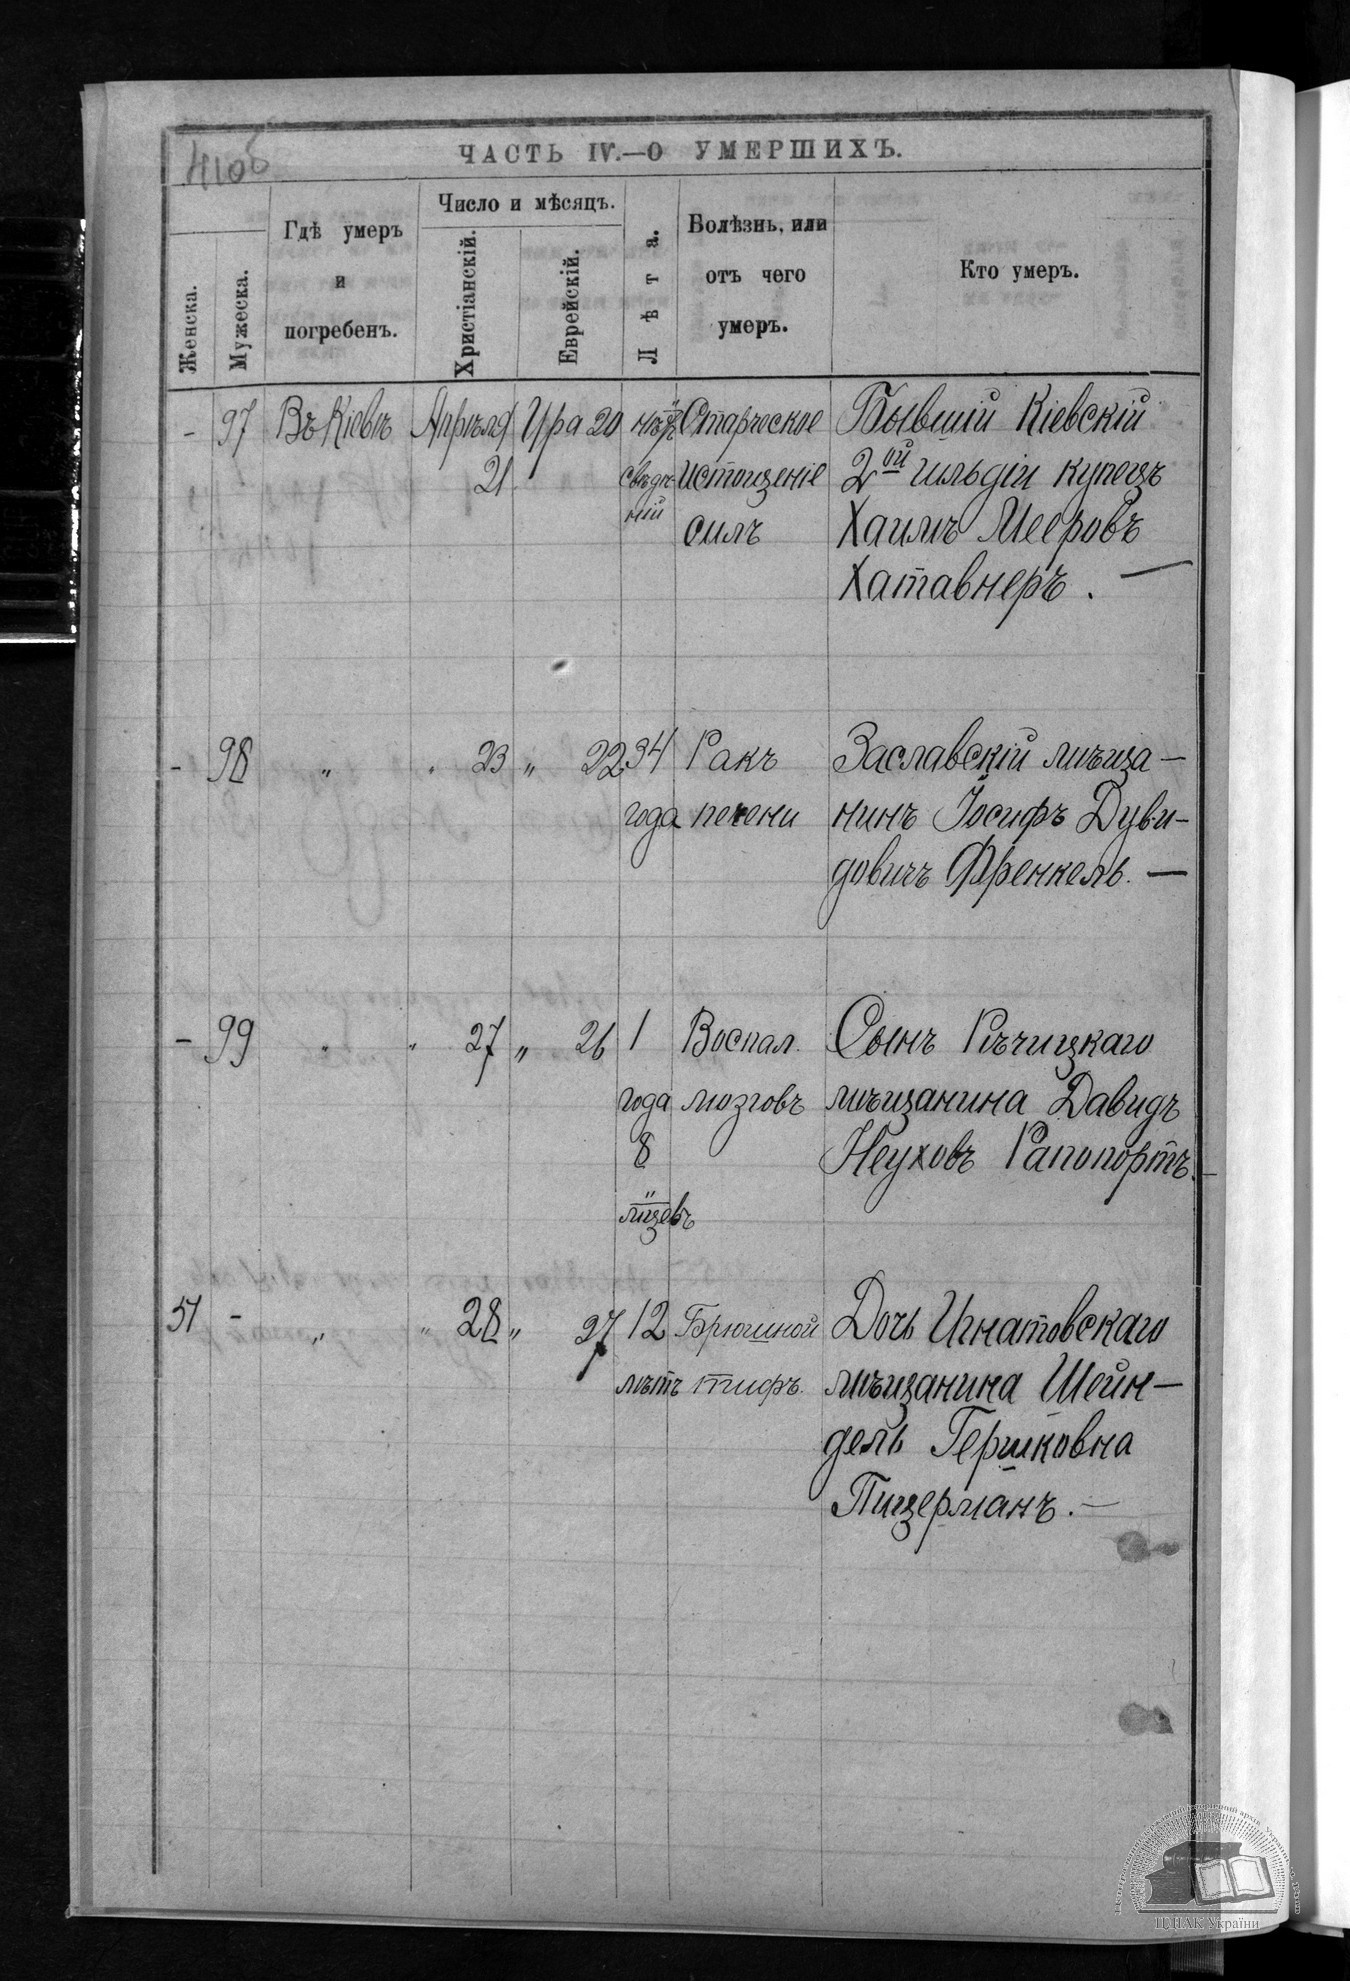 41об
ЧАСТЬ IV.—О УМЕРШИХЪ.
Женска.
Мужеска.
Гдѣ умеръ
и
погребенъ.
Число и мѣсяцъ.
Христіанскій.
Еврейскій.
Лѣта.
Болѣзнь, или
отъ чего
умеръ.
Кто умеръ.
- 97 Въ Кіевѣ Апрѣля Ира 20 нѣтъ Старческое Бывшій Кіевскій
21 свѣдѣ- истощеніе 2ой гильдіи купецъ
ній силъ Хаимъ Мееровъ
Хатавнеръ. —
- 98 " " 23 " 22 34 Ракъ Заславскій мѣща-
года печени нинъ Іосифъ Дуви-
довичъ Френкель. —
- 99 " " 27 " 26 1 Воспал. Сынъ Рѣчицкаго
года мозговъ мѣщанина Давидъ
8 Неуховъ Рапопортъ. —
мцевъ
51 - " " 28 " 27 12 Брюшной Дочь Игнатовскаго
лѣтъ тифъ. мѣщанина Шейн-
дель Гершковна
Пицерманъ. —
ЦДІАК України